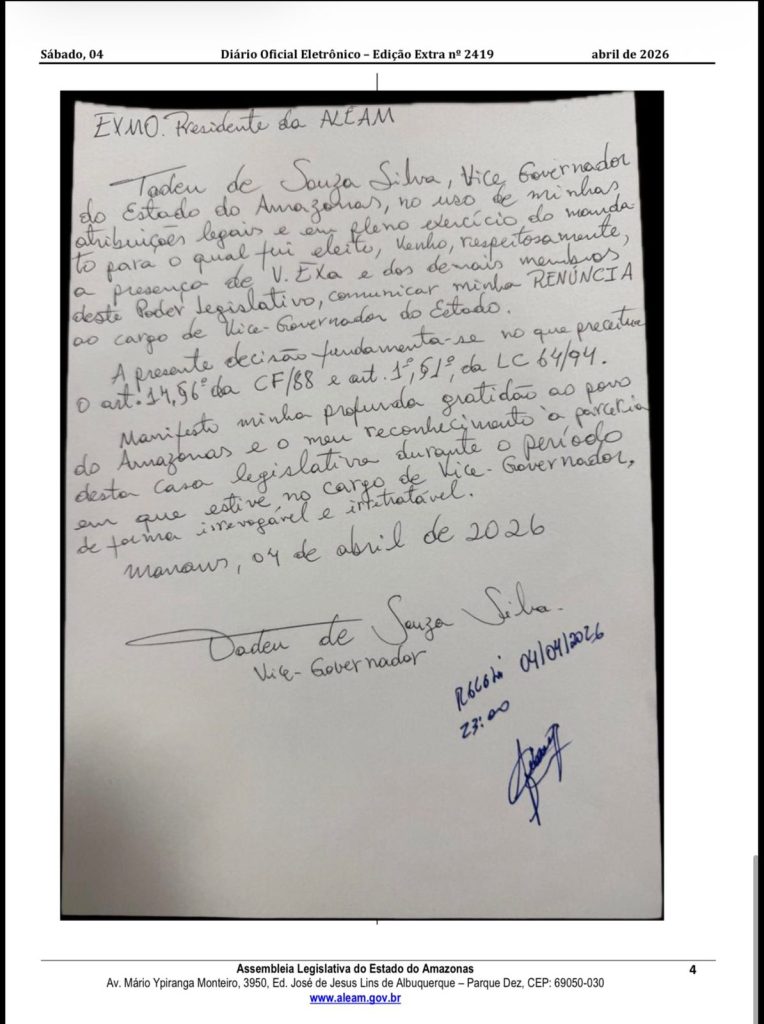 Sábado, 04 Diário Oficial Eletrônico – Edição Extra nº 2419 abril de 2026
EXMO. Presidente da ALEAM
Tadeu de Souza Silva, Vice Governador
do Estado do Amazonas, no uso de minhas
atribuições legais e em pleno exercício do manda-
to para o qual fui eleito, venho, respeitosamente,
a presença de V. EXa e dos demais membros
deste Poder Legislativo, comunicar minha RENÚNCIA
ao cargo de Vice-Governador do Estado.
A presente decisão fundamenta-se no que preceitua
o art. 14, §6º da CF/88 e art. 1º, §1º, da LC 64/94.
Manifesto minha profunda gratidão ao povo
do Amazonas e o meu reconhecimento à parceria
desta casa legislativa durante o período
em que estive, no cargo de Vice-Governador,
de forma irrevogável e irretratável.
Manaus, 04 de abril de 2026
Tadeu de Souza Silva.
Vice-Governador
Recebi 04/04/2026
23:00
Assembleia Legislativa do Estado do Amazonas 4
Av. Mário Ypiranga Monteiro, 3950, Ed. José de Jesus Lins de Albuquerque – Parque Dez, CEP: 69050-030
www.aleam.gov.br